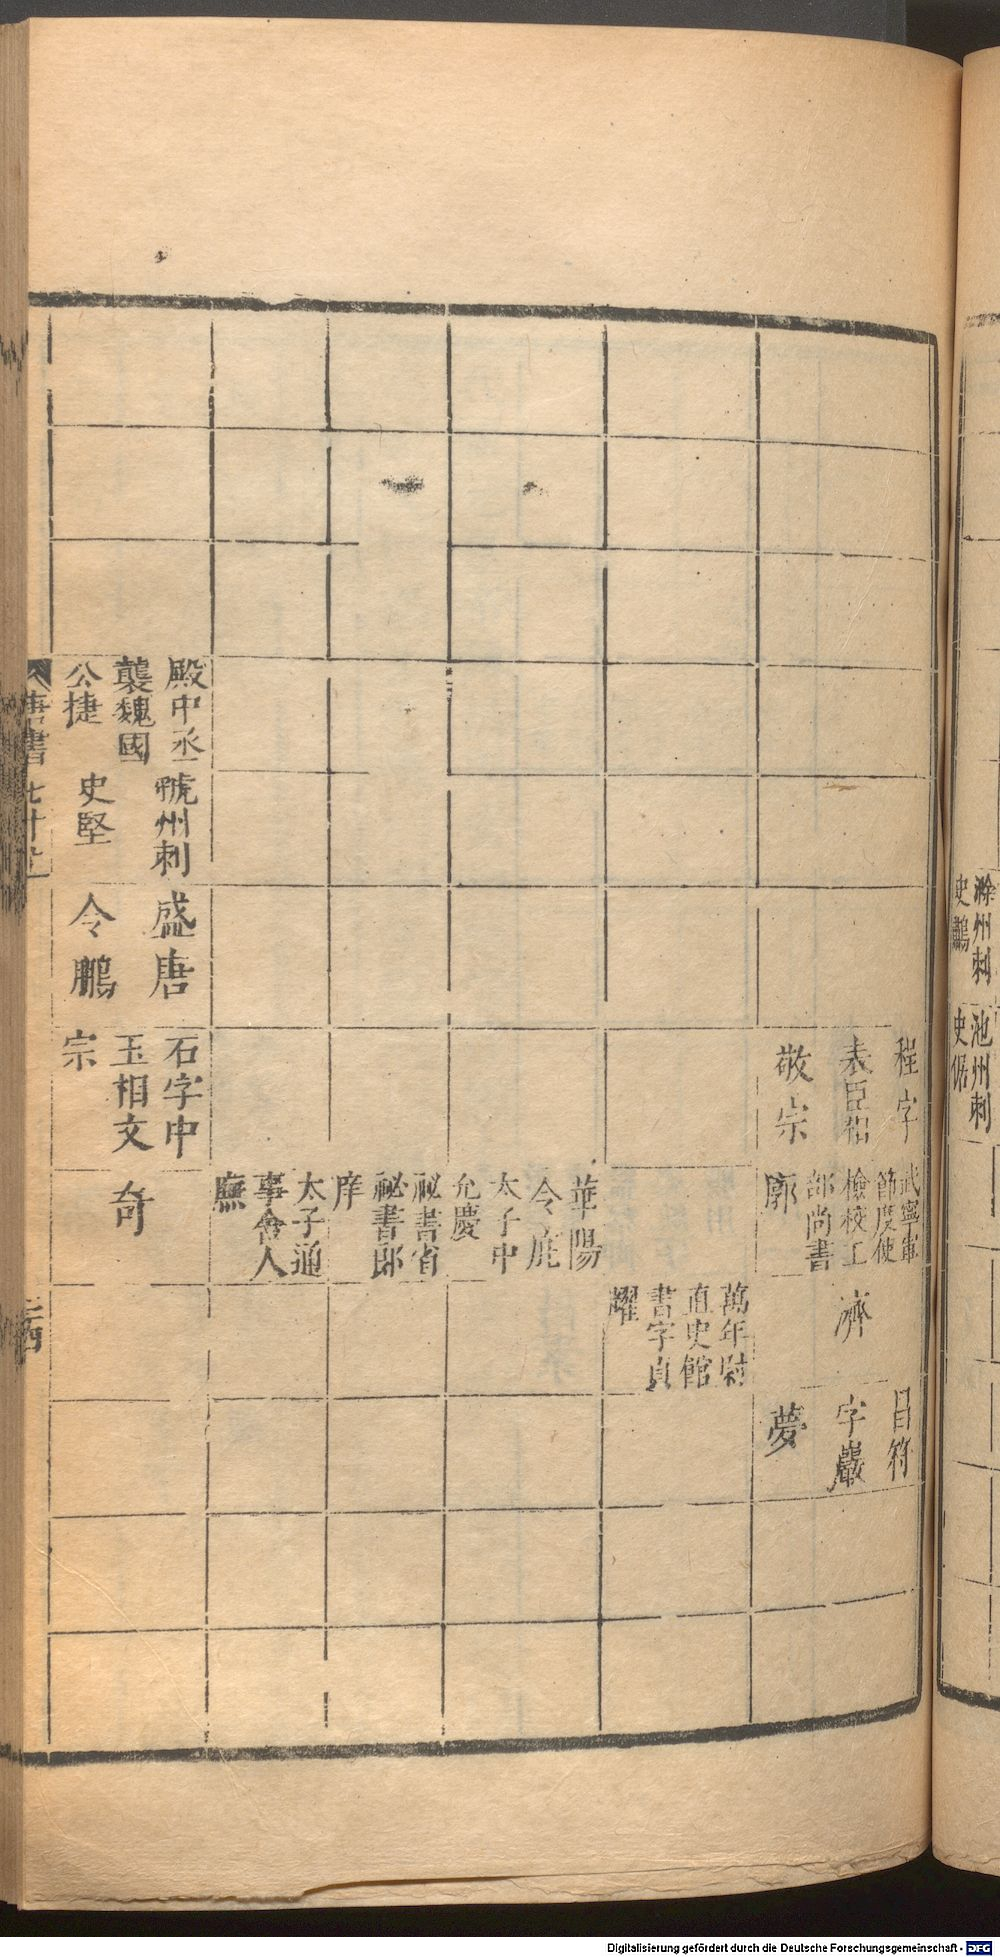 滁州刺
史鸕
池州刺
史倨
程字
表臣相
敬宗
武寧軍
節度使
檢校工
部尚書
廓
濟
目符
字巖
夢
萬年尉
直史館
書字貞
耀
華陽
令庭
太子中
允慶
祕書省
祕書郎
庠
太子通
事舍人
廡
殿中丞
襲魏國
公捷
虢州刺
史堅
盛唐
令鵬
石字中
玉相文
宗
奇
唐書七十上
Digitalisierung gefördert durch die Deutsche Forschungsgemeinschaft - DFG